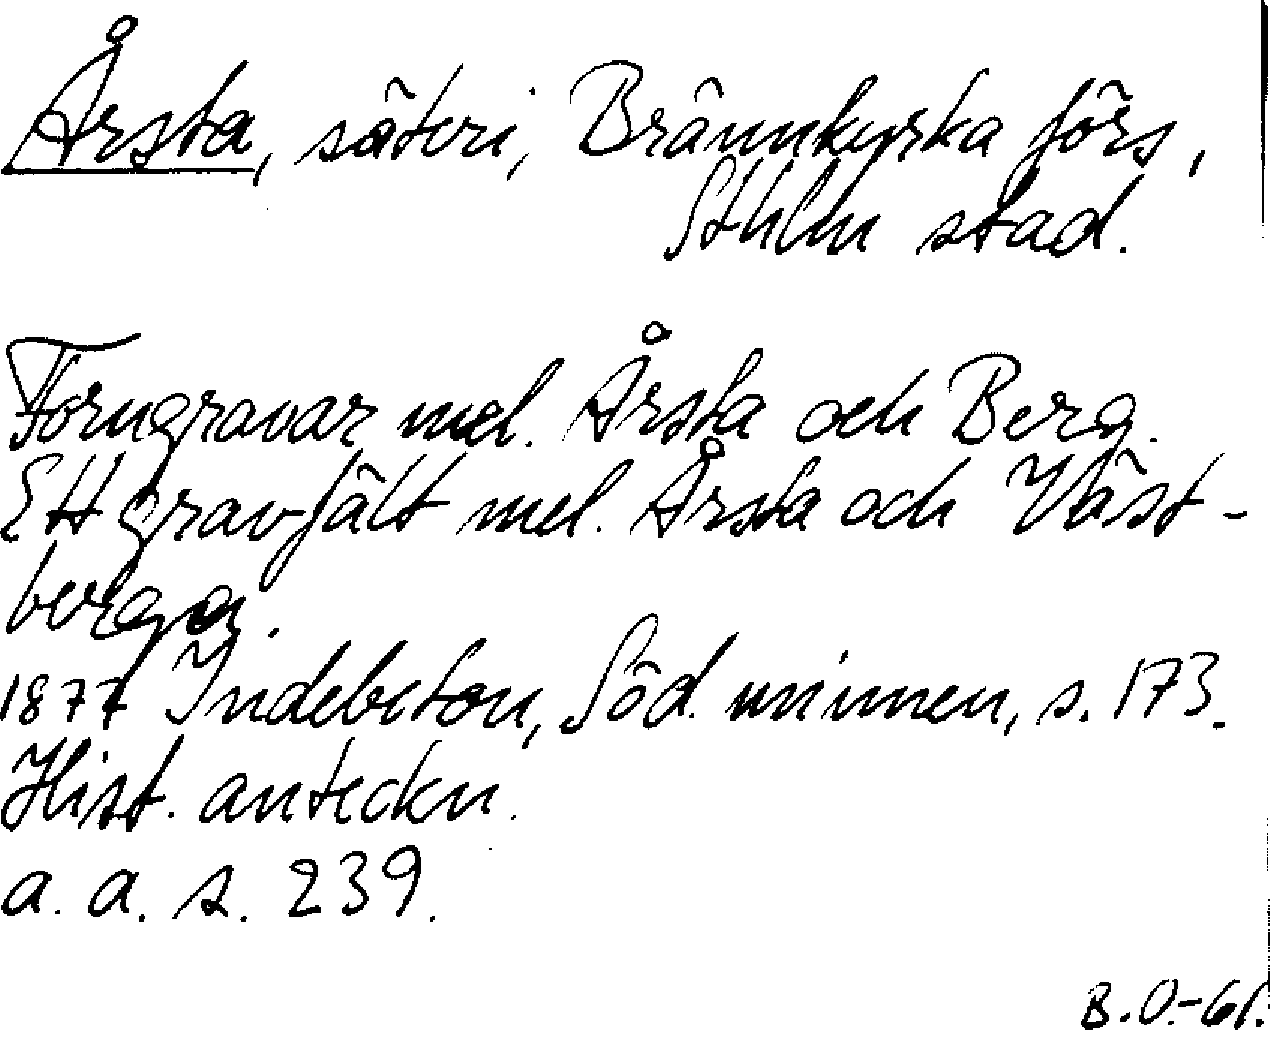 Årsta, säteri, Brännkyrka förs,
Sthlm stad.
Forngravar mel. Årsta och Berg.
Ett gravfält mel. Årsta och Väst-
berga.
1877 Indebetou, Söd. minnen, s. 173.
Hist. anteckn.
a. a. s. 239.
B.O.-61.